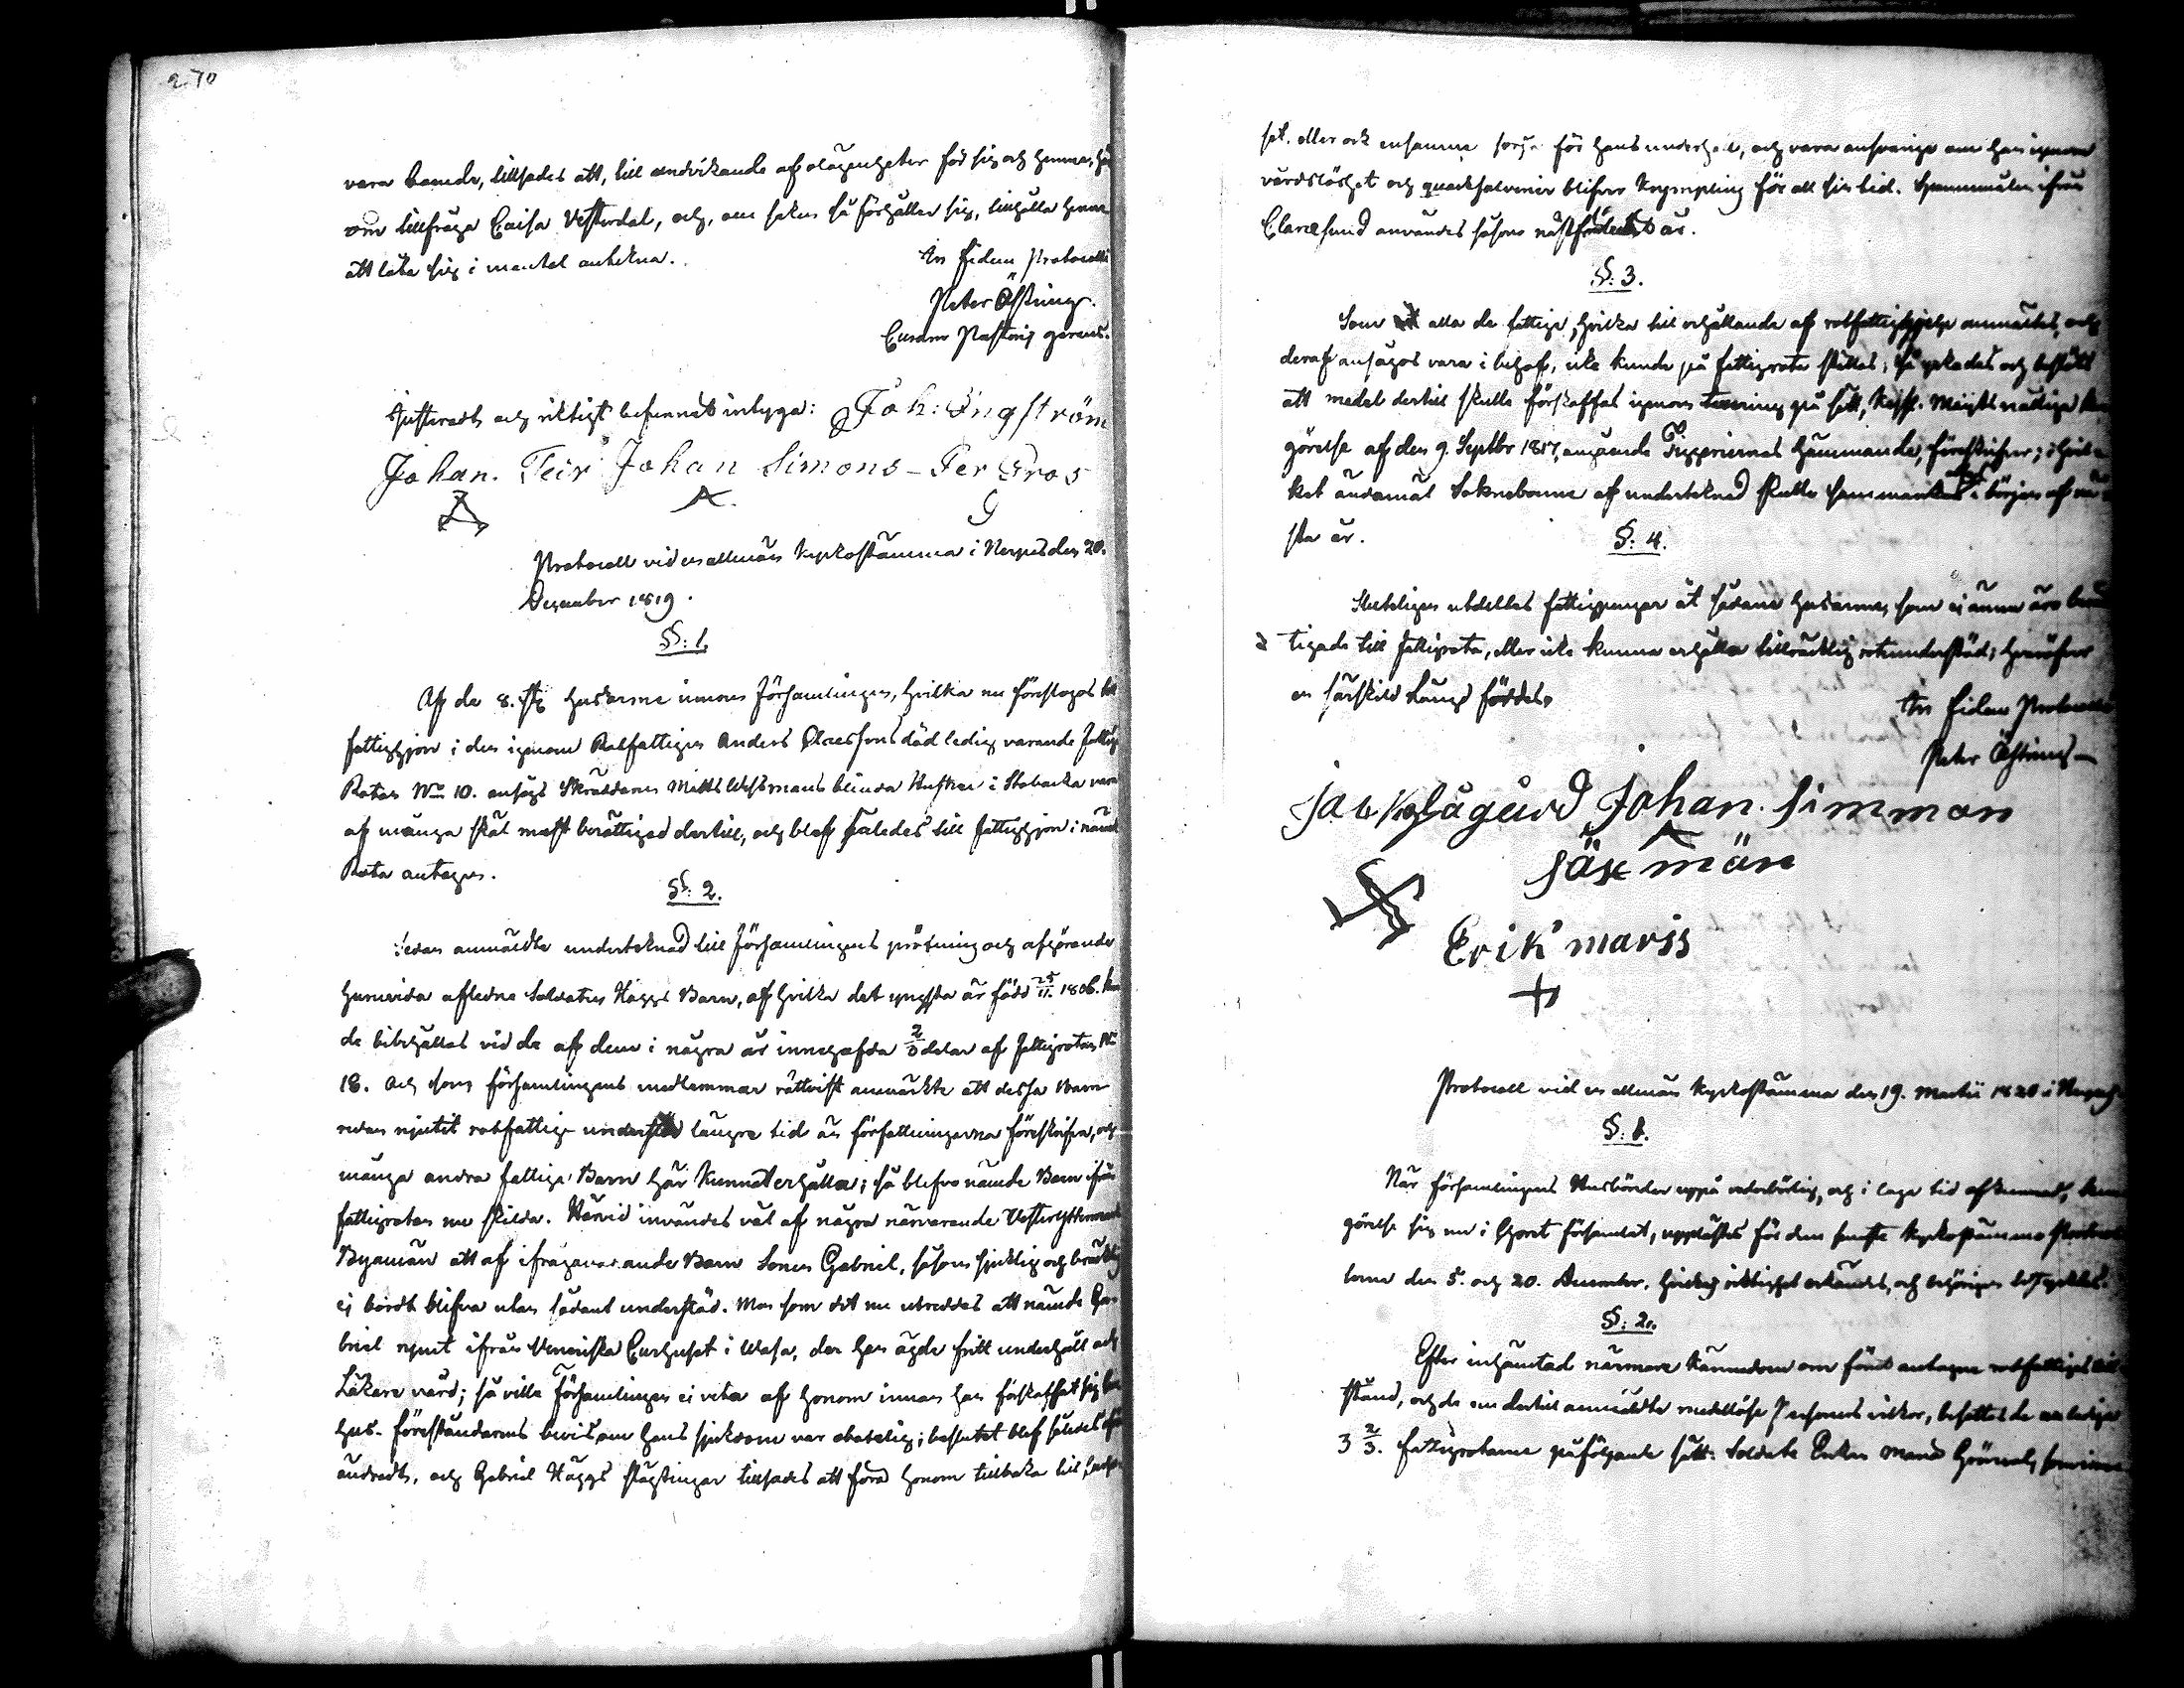 270
vara boende, tillsades att, till undvikande af olägenheter för sig och henne,
om tillfråga Caisa Vesterdal, och, om saken så förhåller sig, tillhålla henne
att låta sig i mantal anteckna.
In fidem Protocolli
Peter Östring.
Curam Pastoris gerens.
Justeradt och riktigt befunnet intyga: Joh: Engström
Johan. Teir Johan Simons - Per Gros
Protocoll vid en allmän Kyrkostämma i Nerpes den 20.
December 1819.
§: 1.
Af de 8. st. husarme innom Församlingen, hvilka nu föreslogos till
fattighjon i den igenom Rotfattigen Anders Claessons död ledig varande fattig
Rotan No 10. ansågs Skräddaren Matts Westmans blinda Hustru i Stobacka vara
af många skäl mäst berättigad dertill, och blef således till fattighjon i nämde
Rota antagen.
§: 2.
Sedan anmäldte undertecknad till Församlingens pröfning och afgörande
huruvida aflidne Soldaten Häggs Barn, af hvilka det yngsta är född 25/11. 1806. kun
de bibehållas vid de af dem i några år innehafda 2/3 delar af fattigrotan No
18. Och som församlingens medlemmar rättvist anmärkte att dessa Barn
redan njutit rotfattige understöd längre tid än författningarna föreskrifva, och
många andra fattiga Barn här kunnat erhålla; så blefvo nämde Barn ifrån
fattigrotan nu skilda. Härvid invändes väl af några närvarande Vesteryttermark
Byamän att af ifrågavarande Barn Sonen Gabriel, såsom sjuklig och bräcklig
ej bordt blifva utan sådant understöd. Men som det nu utreddes att nämde Ga-
briel rymt ifrån Veneriska Curhuset i Wasa, der han ägde fritt underhåll och
Läkare vård; så ville Församlingen ei veta af honom innan han förskaffat sig
hus- föreståndarens bevis, om hans sjukdom var obotelig; beslutet blef således
ändradt, och Gabriel Häggs slägtingar tillsades att föra honom tillbaka till
set. eller ock ensamme sörja för hans underhåll, och vara ansvarige om han igenom
vårdslöshet och quacksalverier blifver krympling för all sin tid. Spannmålen ifrån
Claresund användes såsom nästförledit år.
§: 3.
Som alla de fattige, hvilka till erhållande af rotfattighjelp anmältes, och
deraf ansågos vara i behof, icke kunde på fattigrota sättas; så yrkades och beslöts
att medel dertill skulle förskaffas igenom på sätt, Kejsl. Maijts nådige kun
görelse af den 9. Septbr 1817, angående Tiggeriernas hämmande, föreskrifver; i hvil-
ket ändamål Soknebomme af undertecknad skulle sammankallas i början af nä-
sta år.
§: 4.
Slutligen utdeltes fattigpengar åt sådane husarme, som ej ännu äro berät-
tigade till fattigrota, eller icke kunna erhålla tillräcklig rotunderstöd; hvaröfver
en särskild Längd föddes,
In fidem Protocolli
Peter Östring
Johan. Simmon
säx män
Erik marss
Protocoll vid en allmän Kyrkostämma den 19. Martii 1820 i Nerpes.
§: 1.
När församlingens Husbönder uppå vederbörlig, och i laga tid afkunnad, kun
görelse sig nu i Choret församlat, upplästes för dem senste Kyrkostämmo Protocol
lerne den 5. och 20. December, hvilkas riktighet erkändes, och behörigen besegldes.
§: 2.
Efter inhämtad närmare kännedom om förut antagne rotfattiges till
stånd, och de nu dertill anmäldte medellöse Personers vilkor, besattes de nu lediga
3 2/3. Fattigrotarne på följande sätt: Soldate Enkan Maria